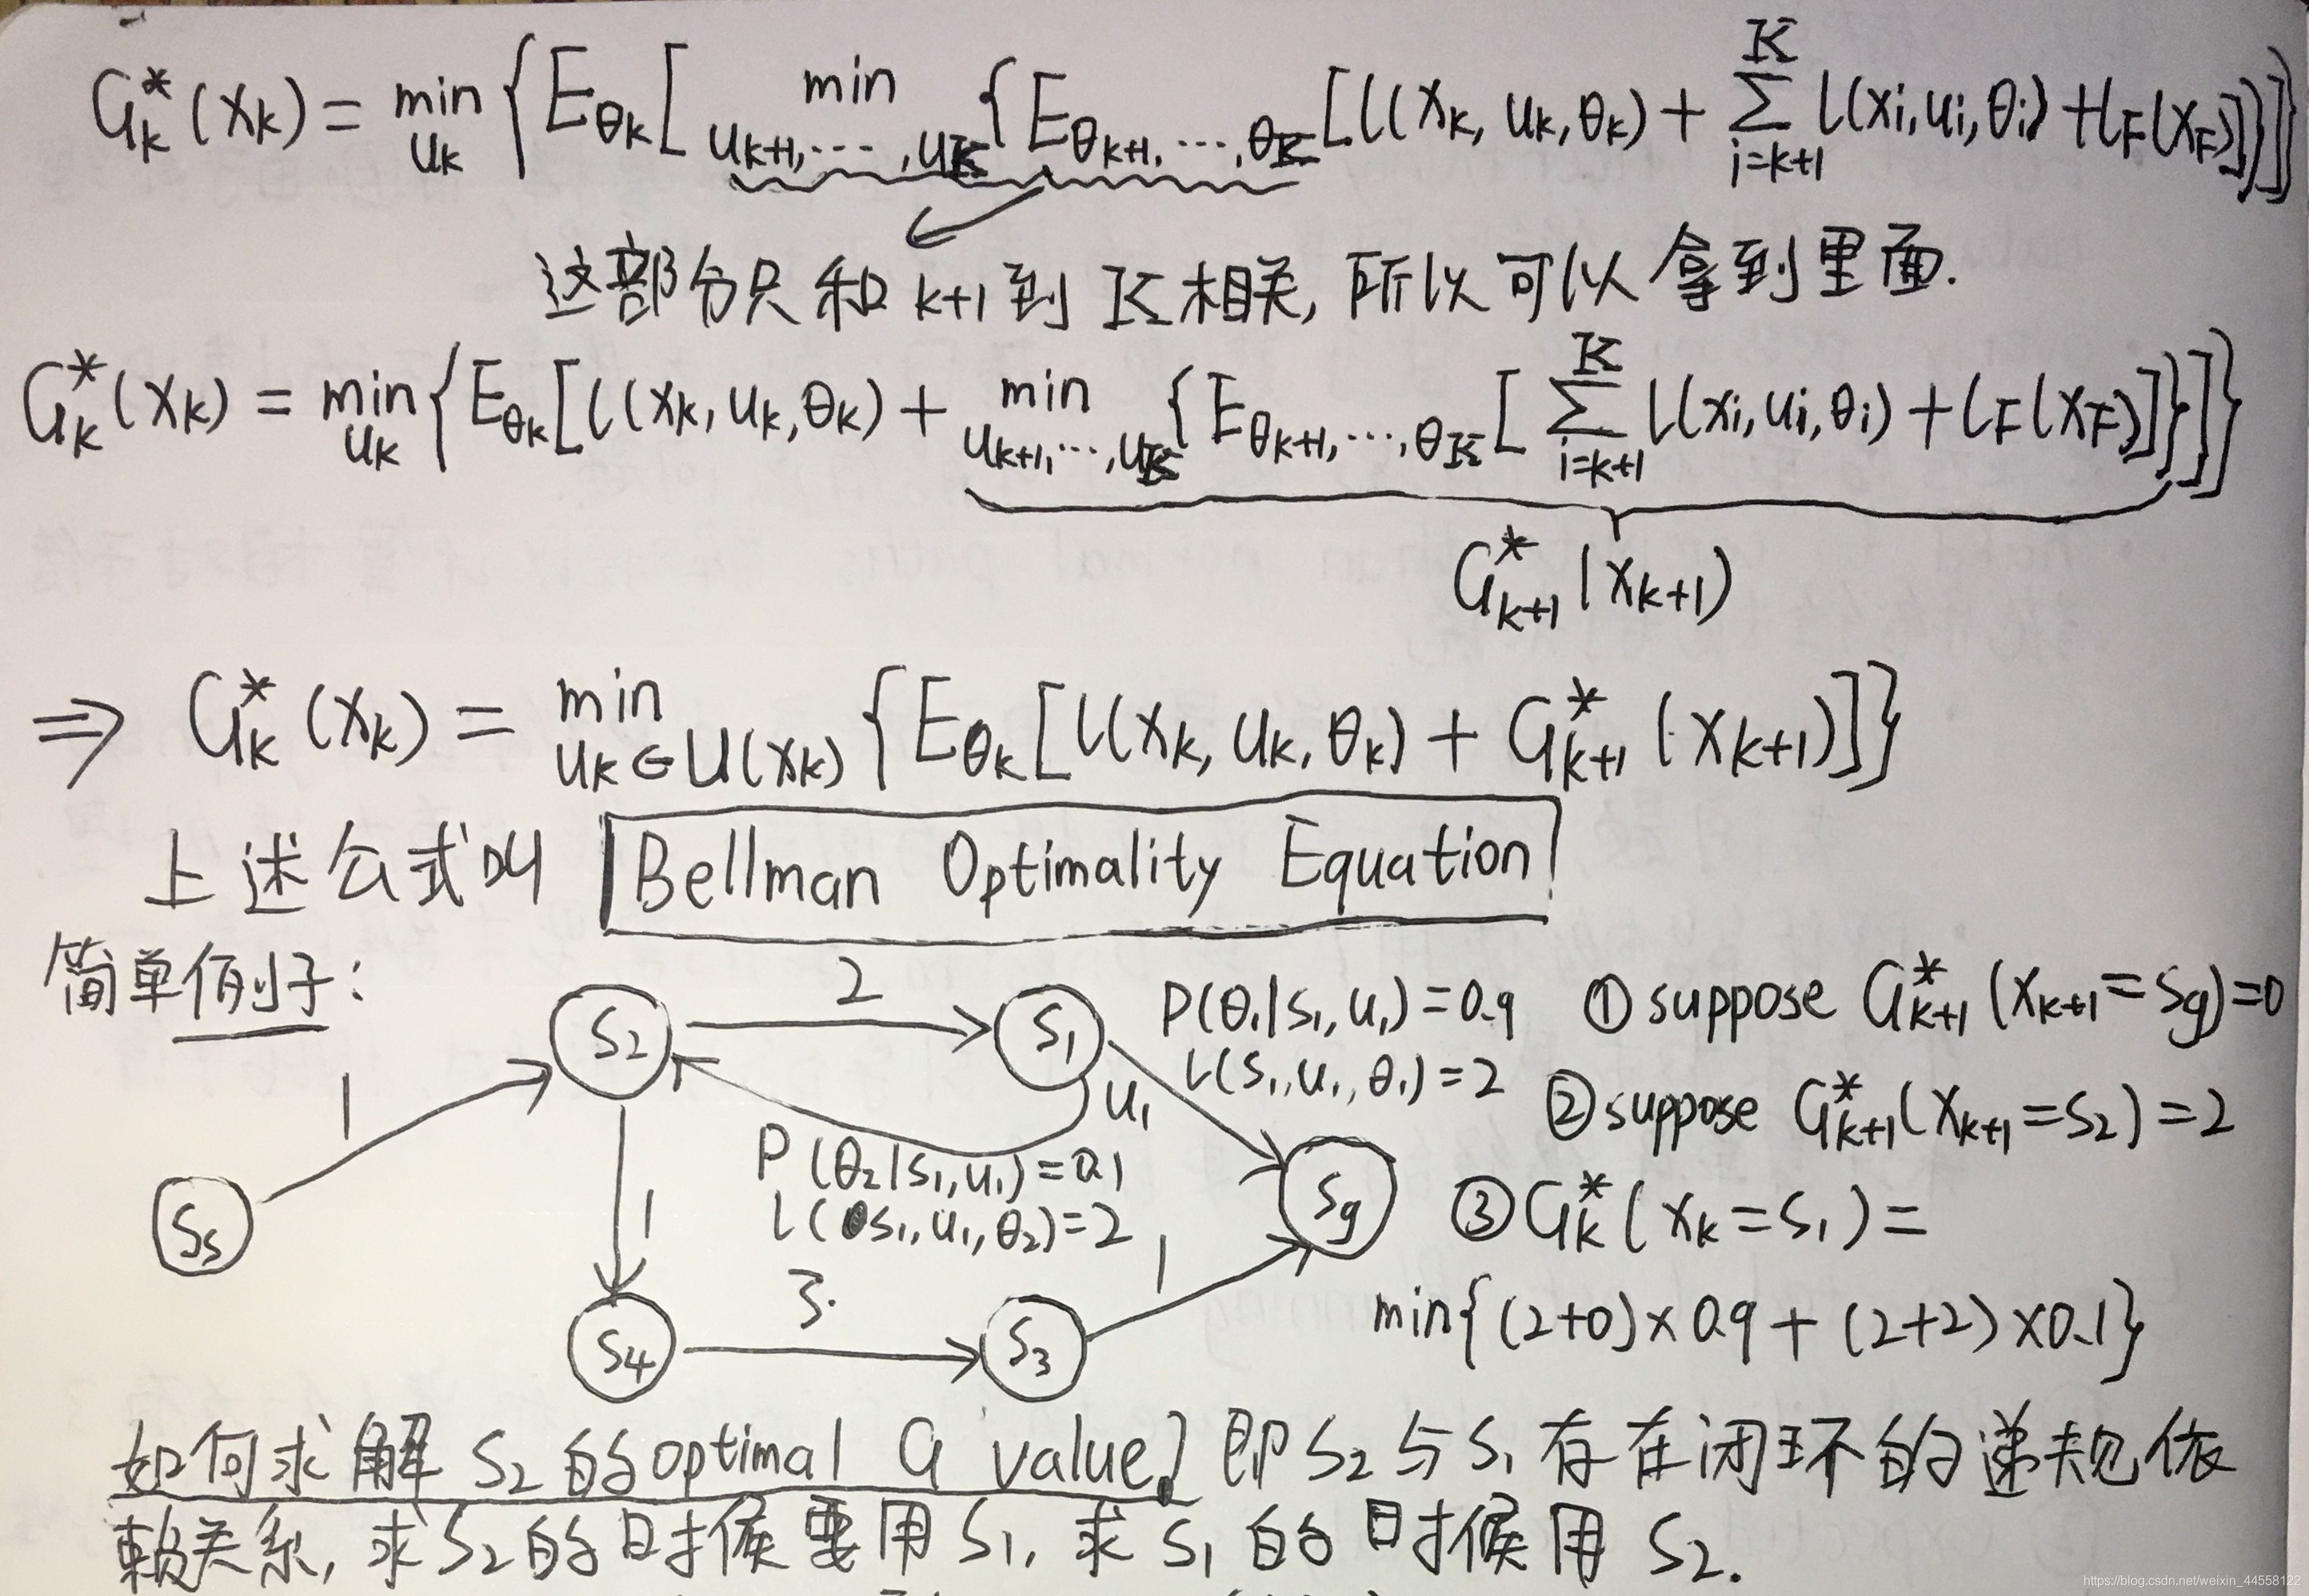 G*_k(x_k) = min_{u_k} {E_{θ_k}[ min_{u_{k+1},…,u_K} {E_{θ_{k+1},…,θ_K}[l(x_k, u_k, θ_k) + Σ_{i=k+1}^{K} l(x_i, u_i, θ_i) + l_F(x_F)]}]}
这部分只和 k+1 到 K 相关, 所以可以拿到里面.
G*_k(x_k) = min_{u_k} {E_{θ_k}[l(x_k, u_k, θ_k) + min_{u_{k+1},…,u_K} {E_{θ_{k+1},…,θ_K}[ Σ_{i=k+1}^{K} l(x_i, u_i, θ_i) + l_F(x_F)]}]}
G*_{k+1}(x_{k+1})
⇒ G*_k(x_k) = min_{u_k∈U(x_k)} {E_{θ_k}[l(x_k, u_k, θ_k) + G*_{k+1}(x_{k+1})]}
上述公式叫 Bellman Optimality Equation
简单例子:
2
S_2
S_1
P(θ_1|s_1, u_1)=0.9
l(s_1, u_1, θ_1)=2
u_1
1
P(θ_2|s_1, u_1)=0.1
l(s_1, u_1, θ_2)=2
S_s
1
S_g
3.
1
S_4
S_3
① suppose G*_{k+1}(x_{k+1}=s_g)=0
② suppose G*_{k+1}(x_{k+1}=s_2)=2
③ G*_k(x_k=s_1)=
min{(2+0)×0.9+(2+2)×0.1}
如何求解 S_2 的 optimal G value? 即 S_2 与 S_1 存在闭环的递规依
赖关系, 求 S_2 的时候要用 S_1, 求 S_1 的时候用 S_2.
https://blog.csdn.net/weixin_44558122